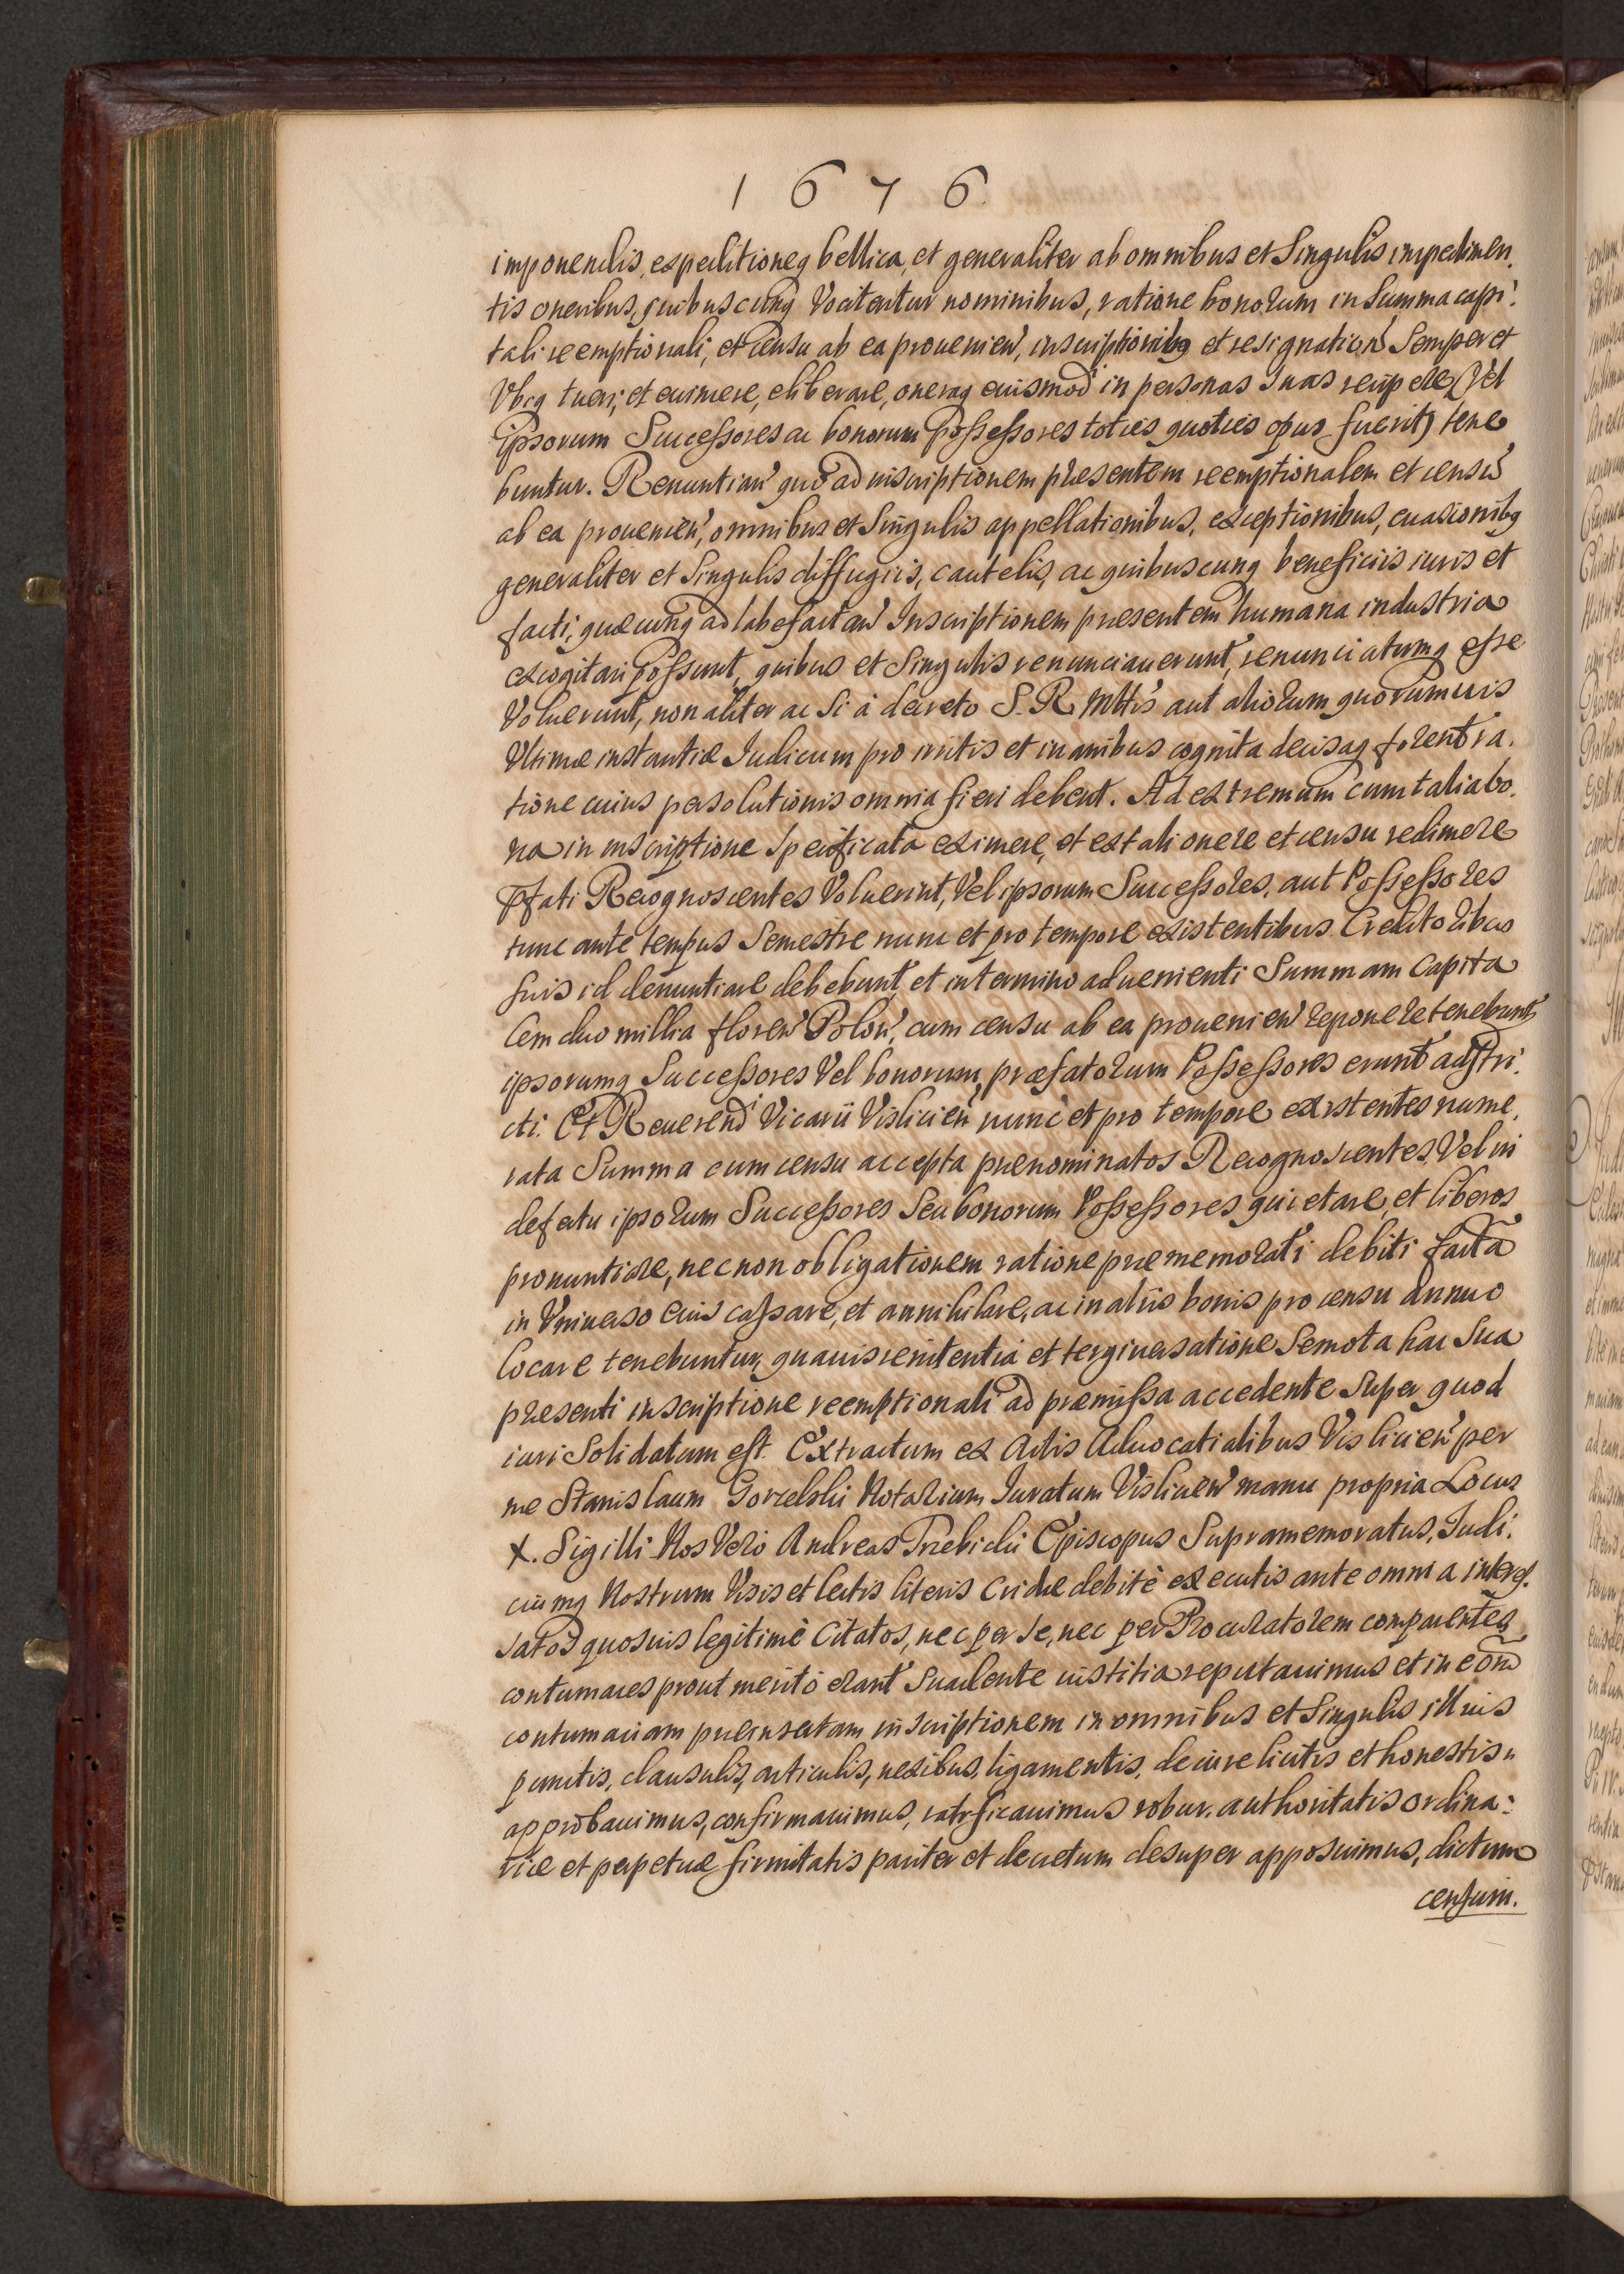 1676
imponendis, expeditioneq bellica, et generaliter ab omnibus et Singulis impedimen.
tis oneribus, quibuscunq Vocitentur nominibus, ratione bonorum in Summa capi.
tali reemptionali, et censu ab ea prouenien, inscriptionibq et resignation Semper et
Vbiq tueri, et euincere, eliberare, oneraq euismod in personas Suas recipere (Vel
ipsorum Successores ac bonorum possessores toties quoties opus fuerit) tene
buntur. Renuntian quo ad inscriptionem presentem reemptionalem et censu
ab ea prouenien, omnibus et Singulis appellationibus, exceptionibus, euasionibq
generaliter et Singulis diffugiis, cautelis, ac quibuscunq beneficiis iuris et
facti, quæcunq ad labefactan Inscriptionem presentem humana industria
excogitari possunt, quibus et Singulis renunciauerunt, renunciatumq esse
Voluerunt, non aliter ac Si à decreto S. R. Mttis aut aliorum quorumuis
Vltimæ instantiæ Iudicum pro irritis et inanibus cognita decisaq forent ra.
tione cuius persolutionis omnia fieri debent. Ad extremum cum talia bo.
na in inscriptione Specificata eximere, et ex tali onere et censu redimere
Pfati Recognoscentes Voluerint, Vel ipsorum Successores, aut Possessores
tunc ante tempus Semestre nunc et pro tempore existentibus Creditoribus
Suis id denuntiare debebunt et in termino aduenienti Summam Capita
lem duo millia floren Polon, cum censu ab ea prouenien reponere tenebunt
ipsorumq Successores Vel bonorum præfatorum Possessores erunt adstri.
cti. Et Reuerendi Vicarii Vislicien nunc et pro tempore existentes nume.
rata Summa cum censu accepta prænominatos Recognoscentes, Vel in
defectu ipsorum Successores Seu bonorum Possessores quietare, et liberos
pronuntiare, nec non obligationem ratione præmemorati debiti facta
in Vniuerso eius cassare, et annihilare, ac in aliis bonis pro censu annuo
locare tenebuntur, quauis renitentia et tergiuersatione Semota hac Sua
presenti inscriptione reemptionali ad præmissa accedente Super quod
iuri Solidatum est. Extractum ex Actis Aduocatialibus Vislicien per
me Stanislaum Gorzelski Notarium Iuratum Vislicien manu propria Locus
X. Sigilli Nos Vero Andreas Trzebicki Episcopus Supramemoratus, Iudi.
ciumq Nostrum Visis et lectis literis Cridæ debitè executis ante omnia interes.
satos quosuis legitimè Citatos, nec per se, nec per Procuratorem comparentes
contumaces prout meritò erant Suadente iustitia reputauimus et in eorum
contumaciam præinsertam inscriptionem in omnibus et Singulis illius
punctis, clausulis, articulis, nexibus, ligamentis, de iure licitis et honestis
approbauimus, confirmauimus, ratificauimus robur authoritatis ordina:
riæ et perpetuæ firmitatis pariter et decretum desuper apposuimus, dictum
censum.